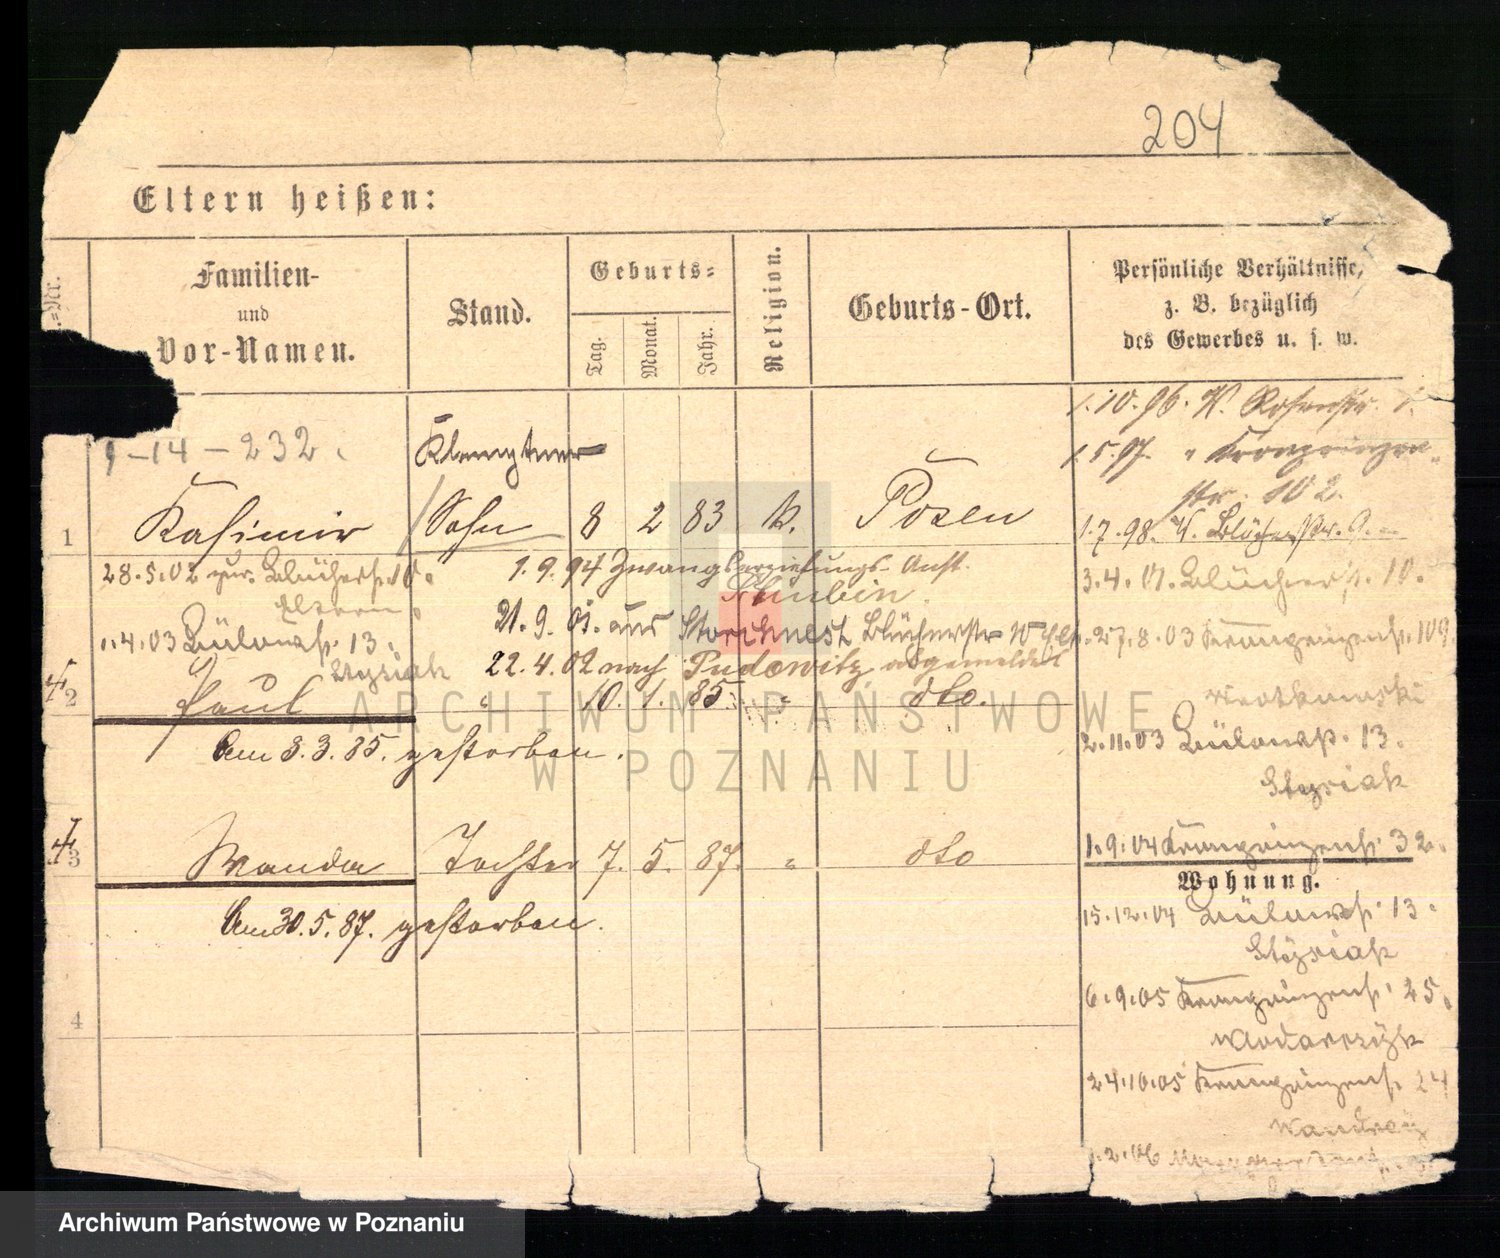 204
Eltern heißen:
=Nr.
Familien-
und
Vor-Namen.
Stand.
Geburts=
Tag.
Monat.
Jahr.
Religion.
Geburts-Ort.
Persönliche Verhältnisse,
z. B. bezüglich
des Gewerbes u. s. w.
9-14-232.
Klemptner
1 Kasimir Sohn 8 2 83 k. Posen
28.5.02 zur. Blücherst. 10.
Eltern
1.4.03 Bülowst. 13.
Stysiak
1.9.94 Zwangserziehungs-Anst.
Schubin.
21.9.01. aus Storchnest Blücherstr 10
22.4.02 nach Pudewitz abgemeldet
2 Paul " 10. 1. 85. " dto.
Am 3.3.85. gestorben.
3 Wanda Tochter 7. 5. 87. " dto
Am 30.5.87. gestorben.
4
1.10.96. W.
1.5.97. " Kronprinzen-
str. 102.
1.7.98. W. Blücherstr. 9.
3.4.01. Blücherst. 10.
27.8.03 Kronprinzenst. 109.
2.11.03 Bülowst. 13.
Stysiak
1.9.04 Kronprinzenst. 32.
Wohnung.
15.12.04 Bülowst. 13.
Stysiak
6.9.05 Kronprinzenst. 25.
24.10.05 Kronprinzenst. 24
1.2.06
ARCHIWUM PAŃSTWOWE
W POZNANIU
Archiwum Państwowe w Poznaniu